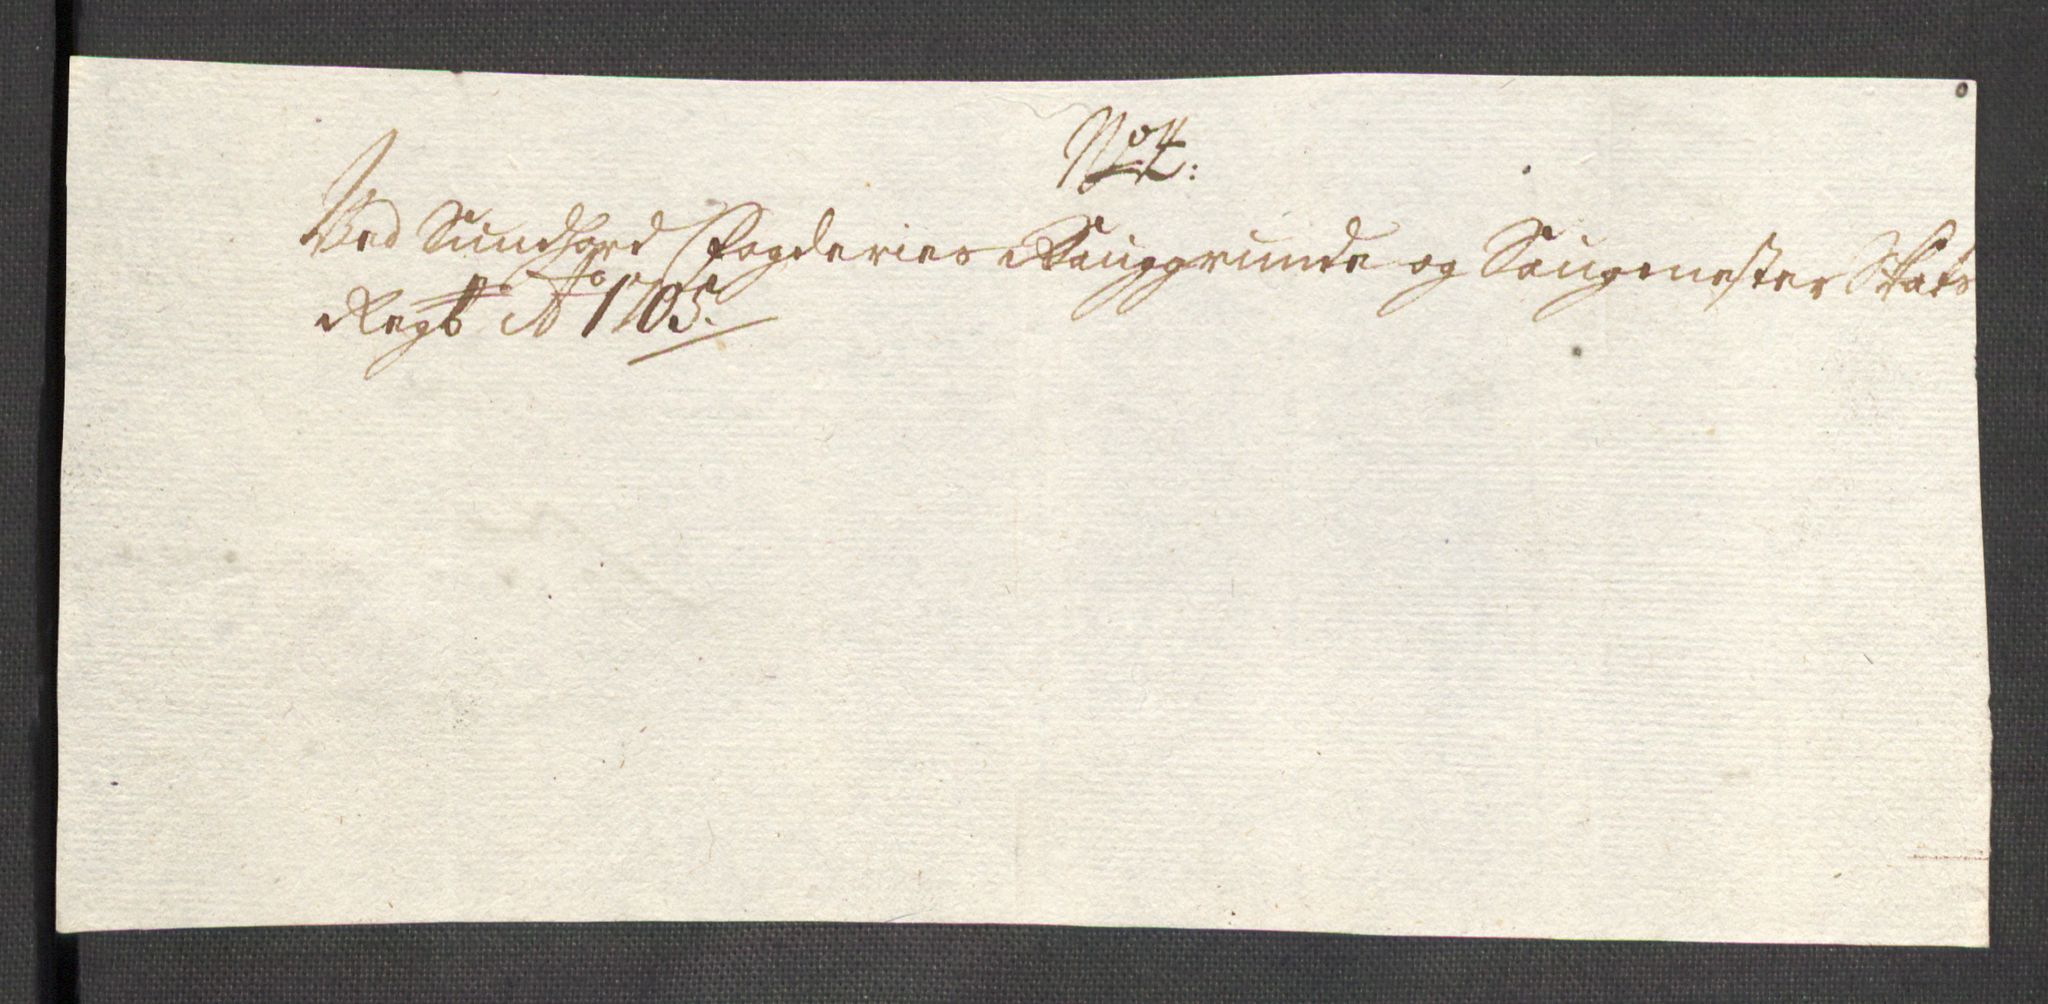 No 4:
Ved Sundhord Fogderies Sauggrunde og Saugmester Skats
Regb Ao 1705.